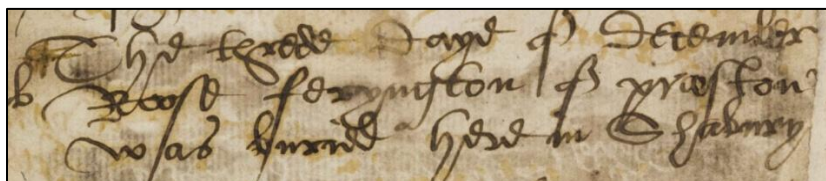 The threde daye of December
b Rose feryngton of preston
was buried here in Shabury